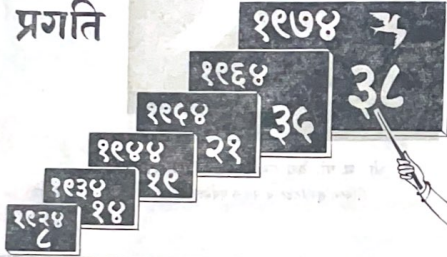 प्रगति
१९७४
३८
१९६४
३५
१९५४
२१
१९४४
१९
१९३४
१४
१९२४
८